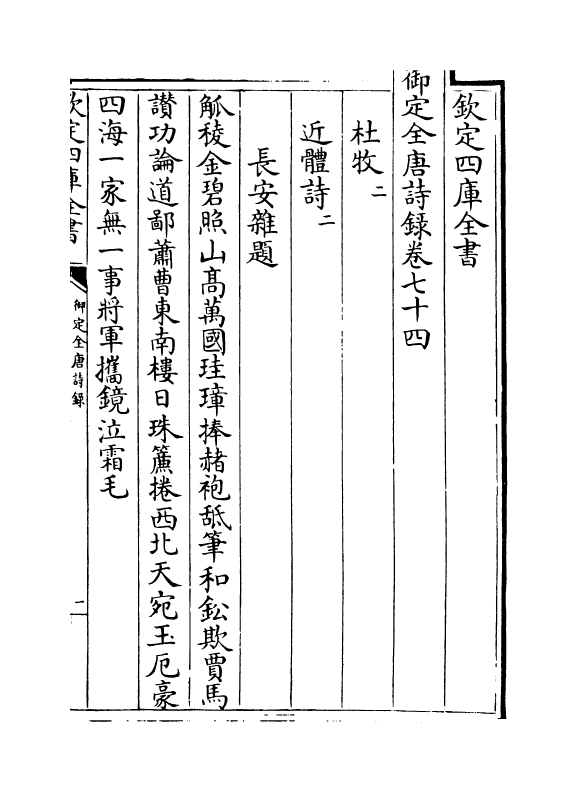 欽定四庫全書
御定全唐詩録卷七十四
杜牧二
近體詩二
長安雜題
觚稜金碧照山高萬國珪璋捧赭袍舐筆和鈆欺賈馬
讚功論道鄙蕭曹東南樓日珠簾捲西北天宛玉厄豪
四海一家無一事將軍攜鏡泣霜毛
欽定四庫全書
御定全唐詩録